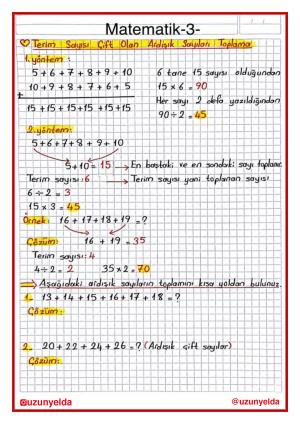 Matematik-3-
Terim Sayısı Çift Olan Ardışık Sayıları Toplama
1. yöntem:
5+6+7+8+9+10 6 tane 15 sayısı olduğundan
10+9+8+7+6+5 15 x 6 = 90
+ Her sayı 2 defa yazıldığından
15+15+15+15+15+15 90÷2=45
2. yöntem:
5+6+7+8+9+10
5+10=15 → En baştaki ve en sondaki sayı toplanır.
Terim sayısı: 6 → Terim sayısı yani toplanan sayısı
6÷2=3
15 x 3 = 45
Örnek: 16+17+18+19=?
Çözüm: 16 + 19 = 35
Terim sayısı: 4
4÷2=2 35x2=70
→ Aşağıdaki ardışık sayıların toplamını kısa yoldan bulunuz.
1- 13+14+15+16+17+18=?
Çözüm:
2- 20+22+24+26=? (Ardışık çift sayılar)
Çözüm:
@uzunyelda @uzunyelda